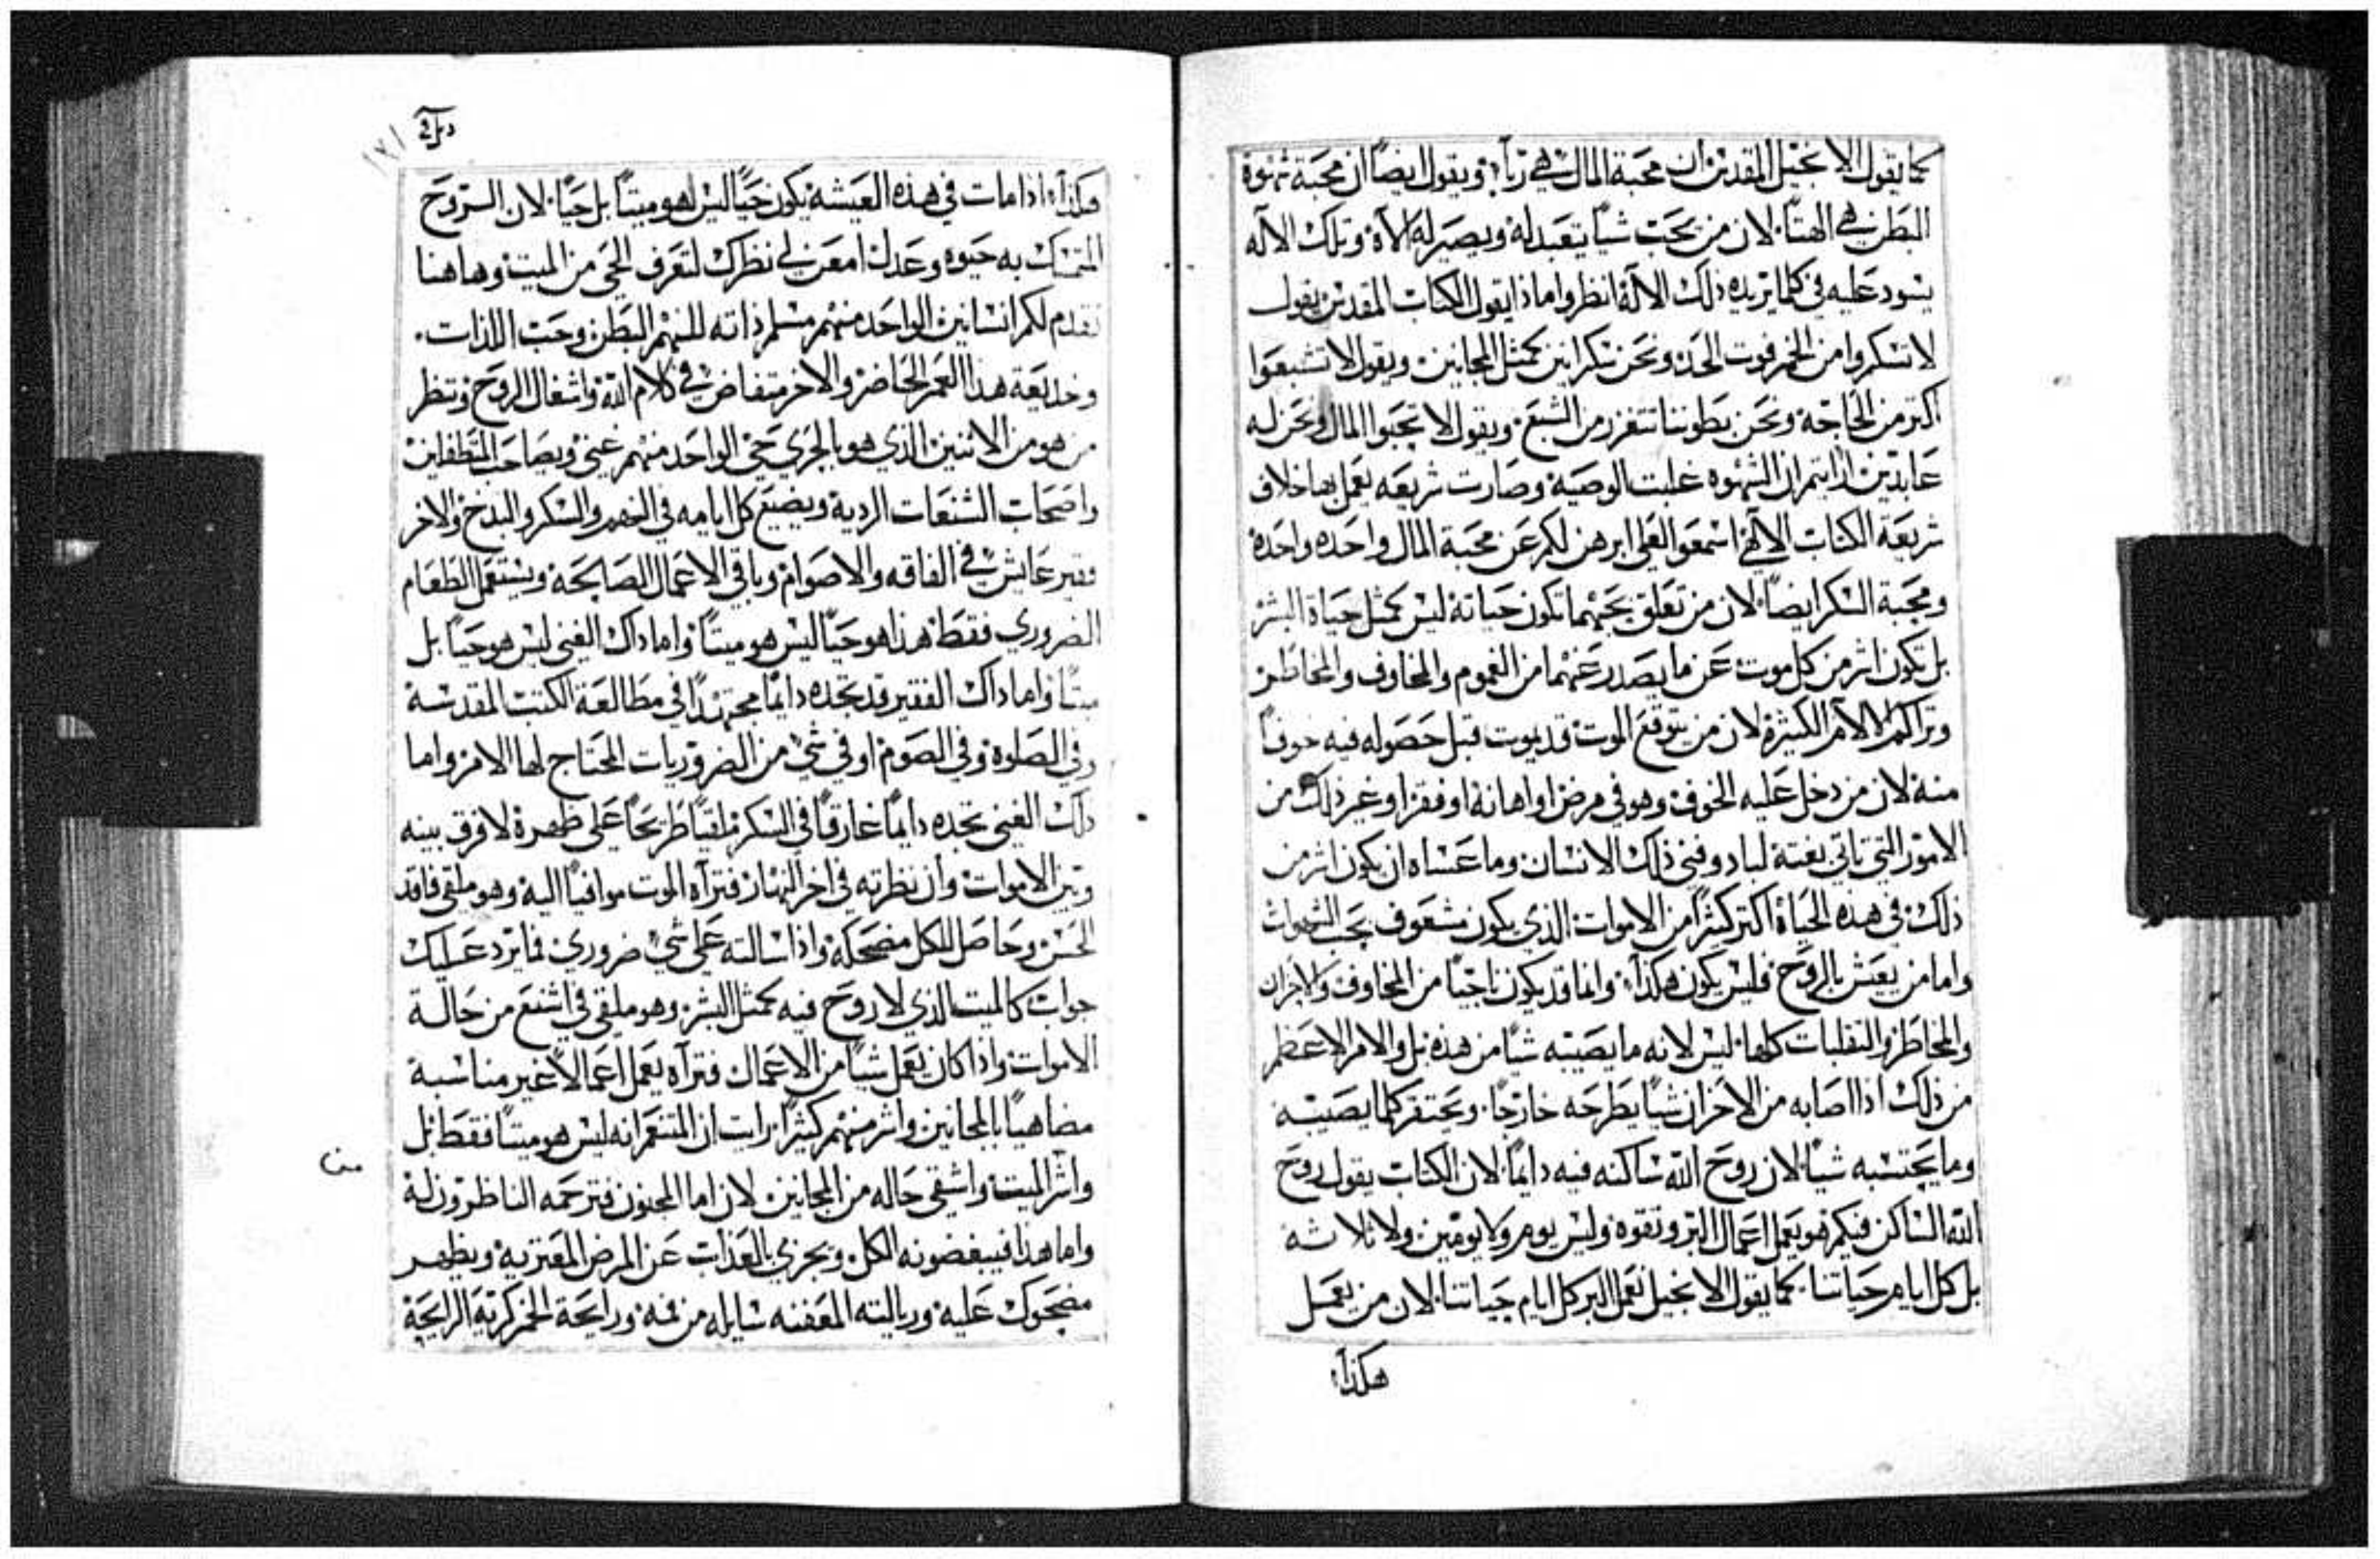 كما يقول الانجيل المقدس ان محبة المال هي ربا؛ ويقول ايضاً ان محبة شهوة
البطن هي الهتاً. لان من يحب شياً يتعبد له ويصير له الاهْ وتلك الاله
يسود عليه في كلما يريده ذلك الالهْ انظروا ماذا يقول الكتاب المقدس يقول
لا تسكروا من الخمر فوت الحد ونحن سكرانين كمثل المجانين. ويقول لا تشبعوا
اكتر من الحاجة ونحن بطوننا تتفزر من الشبع. ويقول لا تحبوا المال ونحن له
عابدين ارايتم ان الشهوه غلبت الوصية وصارت شريعه يعمل بها خلاف
شريعة الكتاب الالهي اسمعوا لعلي ابرهن لكم عن محبة المال واحده واحدة
ومحبة السكر ايضاً. لان من تعلق بحبهما تكون حياته ليس كمثل حياة البشر
بل تكون اشر من كل موت. عن ما يصدر عنهما من الغموم والمخاوف والمخاطر
وتراكم الالام الكثيرة لان من يتوقع الموت قد يموت قبل حصوله فيه خوفاً
منه لان من دخل عليه الخوف وهو في مرض او اهانة او فقر او غير ذلك من
الامور التي تاتي بغتة لباد وفني ذلك الانسان وما عساه ان يكون اشر من
ذلك في هذه الحياة اكتر كثيراً من الاموات الذي يكون مشعوف بحب الشهوات
واما من يعيش بالروح فليس يكون هكذا؛ وانما قد يكون ناجياً من المخاوف والاحزان
والمخاطر والتقلبات كلها. ليس لانه ما يصيبه شياً من هذه بل والامر الاعظم
من ذلك اذا اصابه من الاحزان شياً يطرحه خارجاً. ويحتقر كلما يصيبه
وما يحتسبه شياً. لان روح الله ساكنه فيه دايماً. لان الكتاب يقول روح
الله الساكن فيكم فهو يعمل اعمال البر وتقوه وليس يوم ولا يومين ولا ثلاثه
بل كل ايام حياتنا. كما يقول الانجيل نعمل البر كل ايام حياتنا. لان من يعمل
هكذا؛
١٧١
هكذا؛ اذا مات في هذه العيشه يكون حياً ليس هو ميتاً بل حياً. لان الروح
المتمسك به حيوه وعدل امعن لي نظرك لتعرف الحي من الميت وهاهنا
نقدم لكم انسانين الواحد منهم مسلم ذاته للنهم البطن وحب اللذات.
وخديعة هذا العمر الحاضر والاخر متفاض في كلام الله واشغال الروح وننظر
من هو من الاتنين الذي هو بالحري حي الواحد منهم غني ويصاحب المتطفلين
واصحاب الشنعات الردية ويضيع كل ايامه في النهم والسكر والبدخ والاخر
فقير عايش في الفاقه والاصوام وباقي الاعمال الصالحة ويستعمل الطعام
الضروري فقط هذا هو حياً ليس هو ميتاً واما داك الغني ليس هو حياً بل
ميتاً واما داك الفقير قد تجده دايماً مجتهداً في مطالعة الكتب المقدسة
وفي الصلوة وفي الصوم او في شي من الضروريات المحتاج لها الامر واما
دلك الغني تجده دايماً غارقاً في السكر ملقياً طريحاً على ظهرة لا فرق بينه
وبين الاموات وان نظرته في اخر النهار فتراه الموت موافياً اليه وهو ملقى فاقد
الحس وحاصل للكل مضحكة واذا سالته على شي ضروري فما يرد عليك
جواب كالميت الذي لا روح فيه كمثل البشر وهو ملقى في اشنع من حالة
الاموات واذا كان يعمل شياً من الاعمال فتراه يعمل اعمالاً غير مناسبة
مضاهياً بالمجانين واشر منهم كثيراً رايت ان المتنعم انه ليس هو ميتاً فقط بل
واشر الميت واشقى حاله من المجانين لان اما المجنون فترحمه الناظرون له
واما هذا فيبغضونه الكل ويجزي بالعذاب عن المرض المعتريه ويظهر
مضحوك عليه وريالته المعفنه سايله من فمه ورايحة الخمر كرية الرايحة